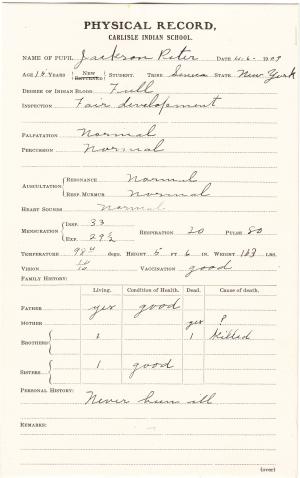 PHYSICAL RECORD,
CARLISLE INDIAN SCHOOL.
NAME OF PUPIL Jackson Peter DATE 11-6- 1909
AGE 18 YEARS { NEW RETURNED } STUDENT. TRIBE Seneca STATE New York
DEGREE OF INDIAN BLOOD Full
INSPECTION Fair development
PALPATATION Normal
PERCUSSION Normal
AUSCULTATION { RESONANCE Normal
RESP. MURMUR Normal
HEART SOUNDS Normal
MENSURATION { INSP. 33 RESPIRATION 20 PULSE 80
EXP. 29½
TEMPERATURE 98⁴ degs. HEIGHT 5 FT 6 IN. WEIGHT 123 LBS.
VISION VACCINATION good
FAMILY HISTORY:
Living. Condition of Health. Dead. Cause of death.
FATHER yes good
MOTHER yes ?
BROTHERS { 1 1 Killed
SISTERS { 1 good
PERSONAL HISTORY:
Never been ill
REMARKS:
(over)